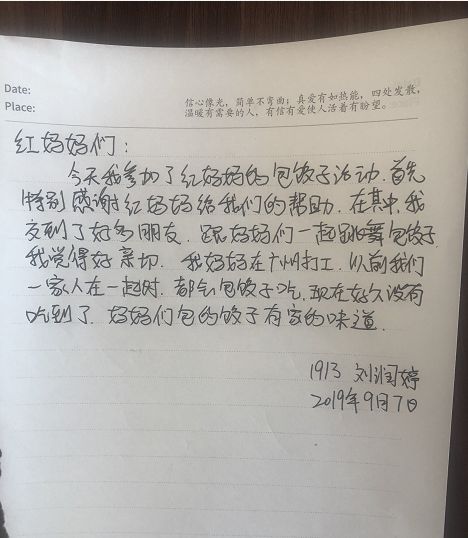 Date:
Place:
信心像光，简单不弯曲；真爱有如热能，四处发散，
温暖有需要的人，有信有爱使人活着有盼望。
红妈妈们：
今天我参加了红妈妈的包饺子活动.首先
特别感谢红妈妈给我们的帮助.在其中我
交到了好多朋友.跟妈妈们一起跳舞包饺子.
我觉得好亲切.我妈妈在广州打工.以前我们
一家人在一起时.都会包饺子吃.现在好久没有
吃到了.妈妈们包的饺子有家的味道.
1913 刘润婷
2019年9月7日